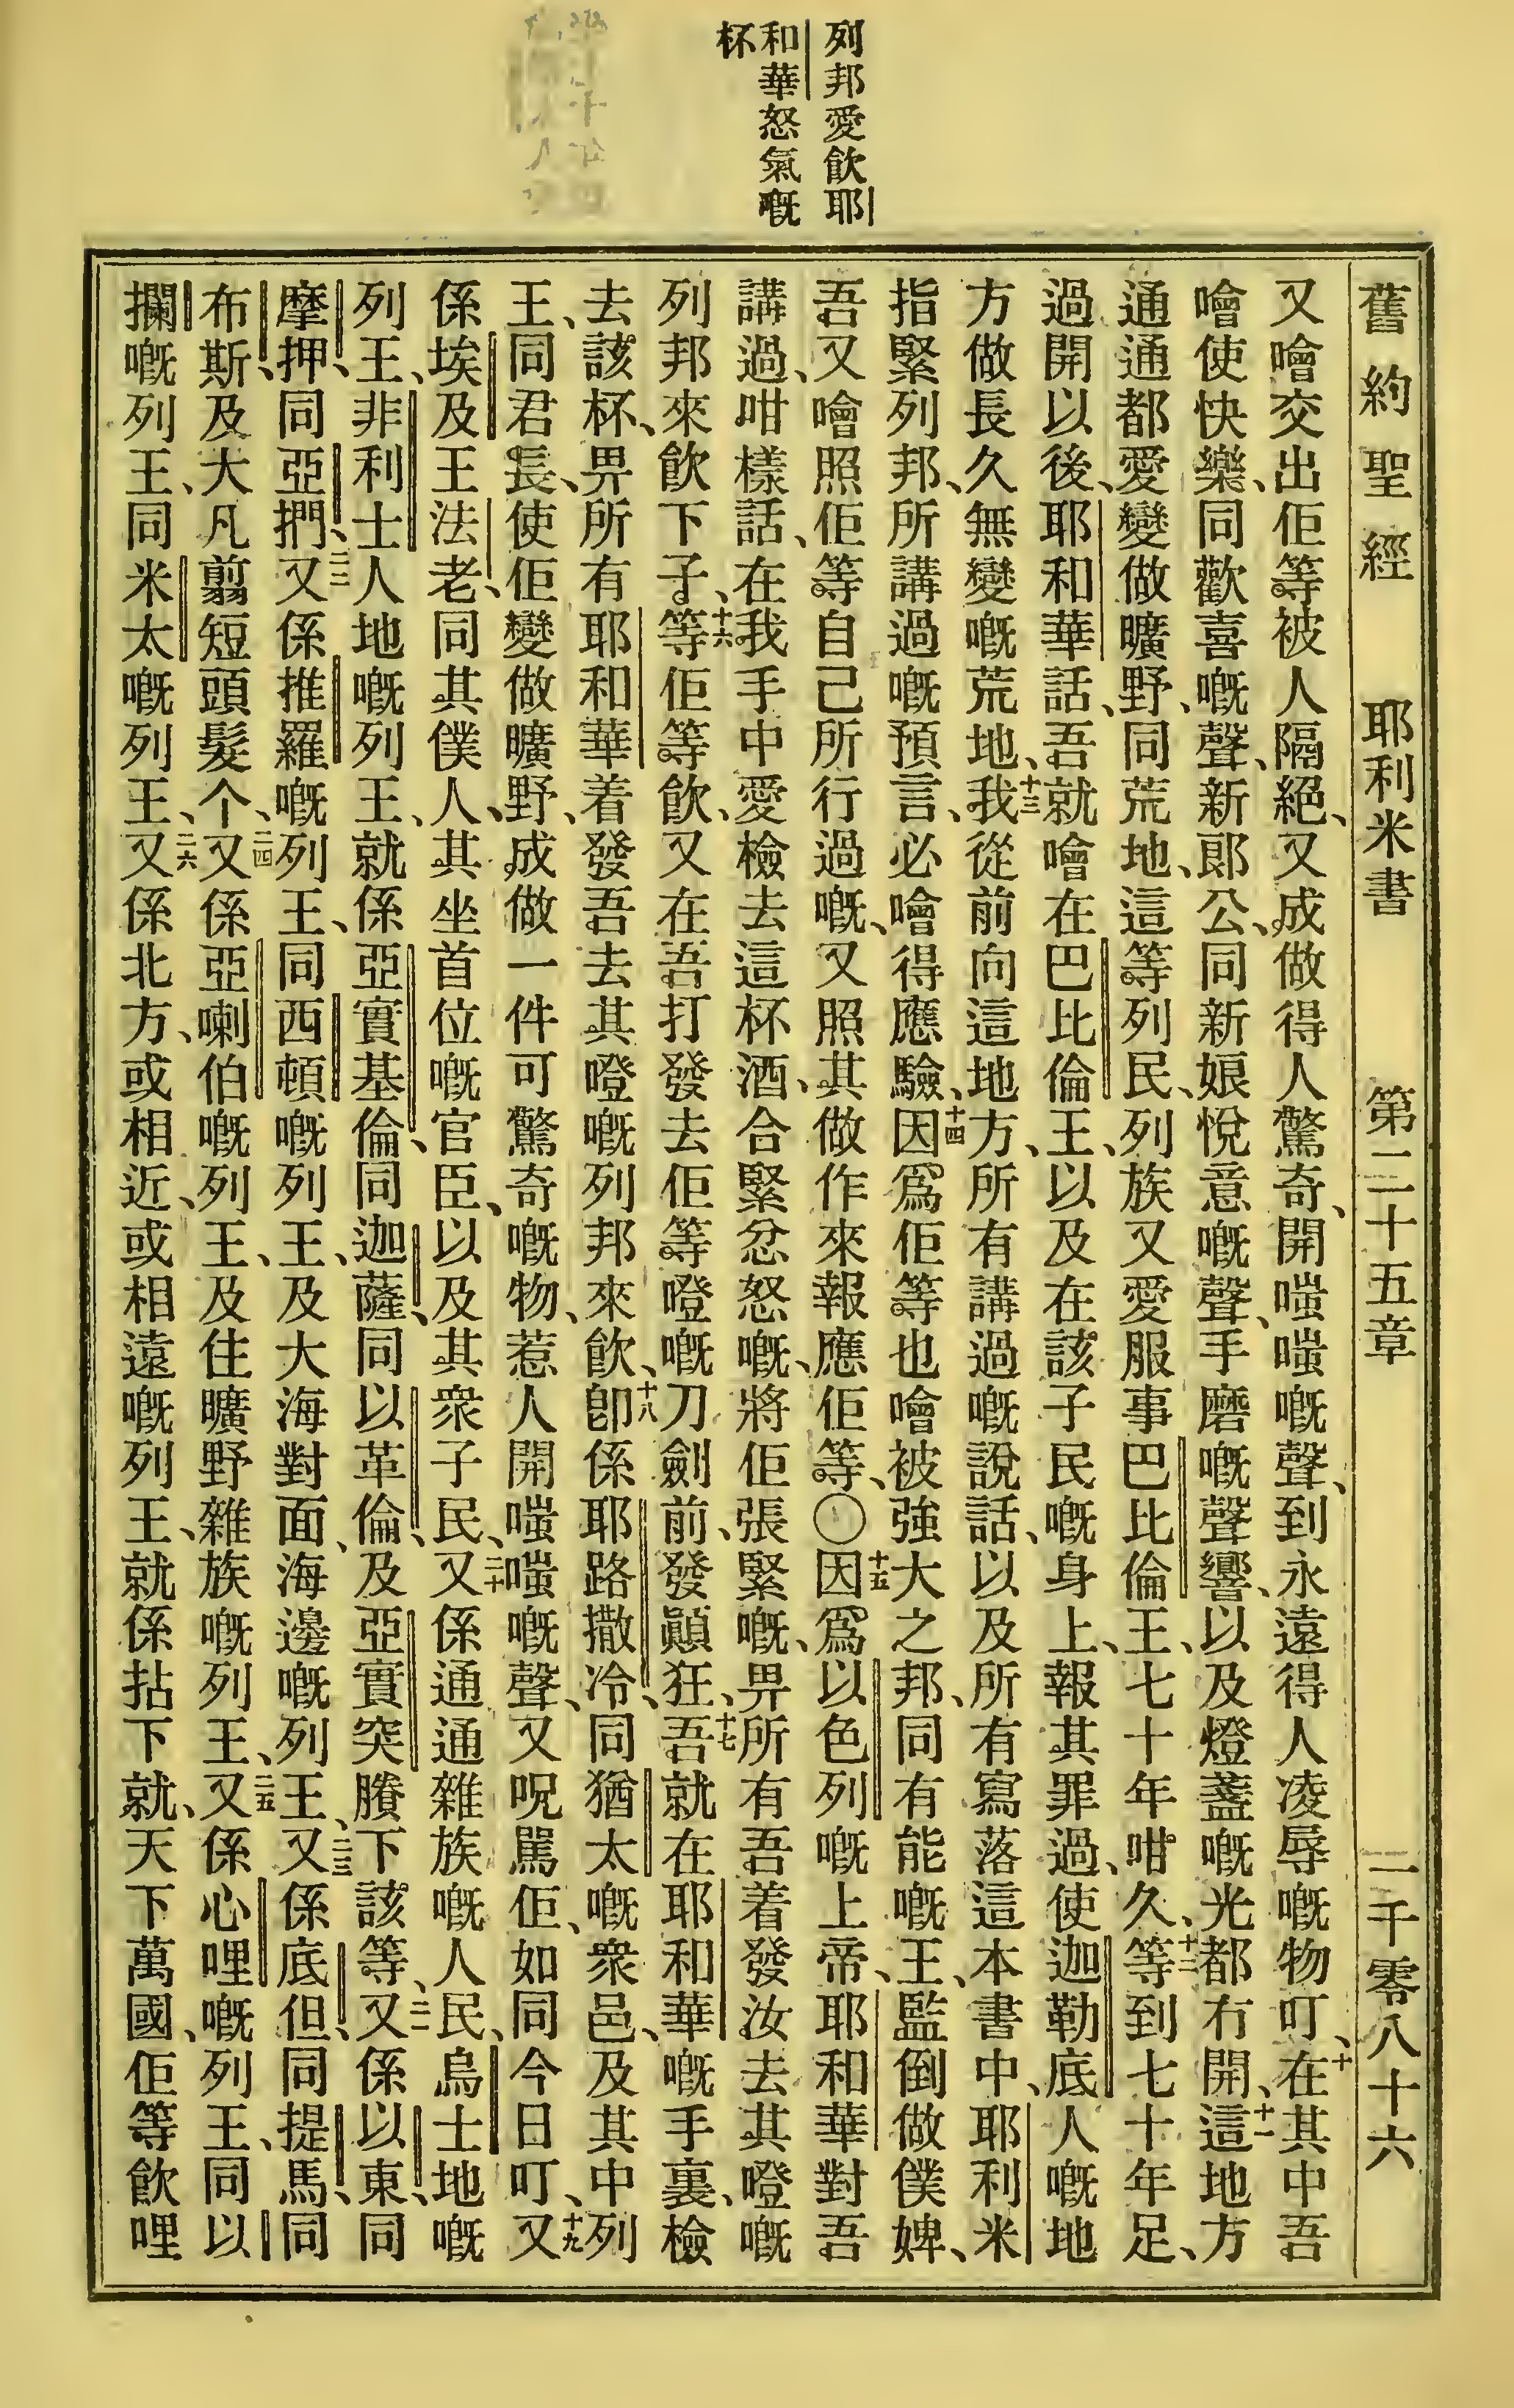 列邦愛飲耶
和華怒氣嘅
杯
舊約聖經 耶利米書 第二十五章 一千零八十六
又噲交出佢等被人隔絕、又成做得人驚奇、開嗤嗤嘅聲、到永遠得人凌辱嘅物叮、十在其中吾
噲使快樂、同歡喜嘅聲、新郎公、同新娘悅意嘅聲、手磨嘅聲響、以及燈盞嘅光都冇開、十一這地方
通通都愛變做曠野、同荒地、這等列民、列族又愛服事巴比倫王、七十年咁久、十二等到七十年足、
過開以後、耶和華話、吾就噲在巴比倫王、以及在該子民嘅身上、報其罪過、使迦勒底人嘅地
方做長久無變嘅荒地、十三我從前向這地方、所有講過嘅說話、以及所有寫落這本書中、耶利米
指緊列邦、所講過嘅預言、必噲得應驗、十四因爲佢等也噲被強大之邦、同有能嘅王、監倒做僕婢、
吾又噲照佢等自己所行過嘅、又照其做作來報應佢等、〇十五因爲以色列嘅上帝、耶和華對吾
講過、咁樣話、在我手中愛檢去這杯酒、合緊忿怒嘅、將佢張緊嘅、畀所有吾着發汝去其噔嘅
列邦來飲下子、十六等佢等飲、又在吾打發去佢等噔嘅刀劍前、發顚狂、十七吾就在耶和華嘅手裏、檢
去該杯、畀所有耶和華着發吾去其噔嘅列邦來飲、十八卽係耶路撒冷、同猶太嘅衆邑、及其中列
王、同君長、使佢變做曠野、成做一件可驚奇嘅物、惹人開嗤嗤嘅聲、又呪罵佢、如同今日叮、十九又
係埃及王法老、同其僕人、其坐首位嘅官臣、以及其衆子民、二十又係通通雜族嘅人民、烏士地嘅
列王、非利士人地嘅列王、就係亞實基倫、同迦薩、同以革倫、及亞實突賸下該等、二一又係以東、同
摩押、同亞捫、二二又係推羅嘅列王、同西頓嘅列王、及大海對面、海邊嘅列王、二三又係底但、同提馬、同
布斯、及大凡翦短頭髮个、二四又係亞喇伯嘅列王、及住曠野雜族嘅列王、二五又係心哩嘅列王、同以
攔嘅列王、同米太嘅列王、二六又係北方、或相近、或相遠嘅列王、就係拈下就、天下萬國、佢等飲哩